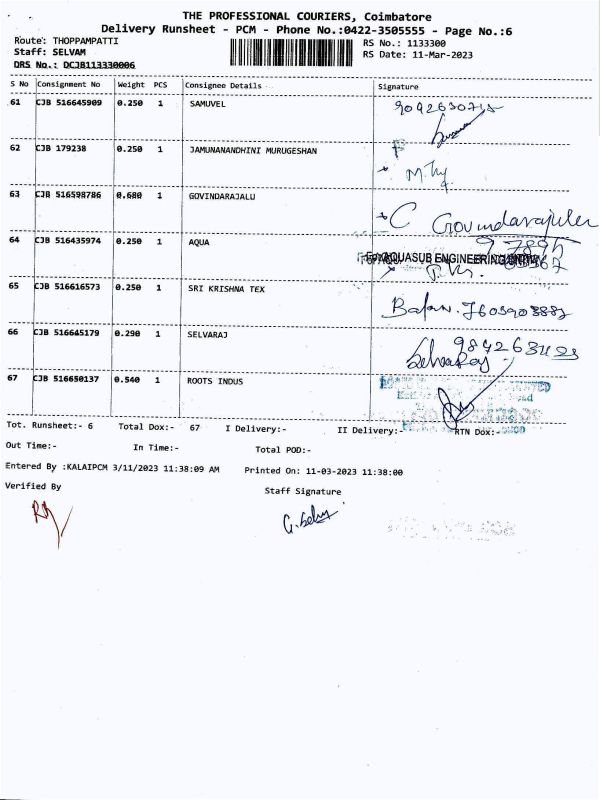 THE PROFESSIONAL COURIERS, Coimbatore
Delivery Runsheet - PCM - Phone No.:0422-3505555 - Page No.:6
Route: THOPPAMPATTI
Staff: SELVAM
DRS No.: DCJB113330006
RS No.: 1133300
RS Date: 11-Mar-2023
S No Consignment No Weight PCS Consignee Details Signature
61 CJB 516645909 0.250 1 SAMUVEL
62 CJB 179238 0.250 1 JAMUNANANDHINI MURUGESHAN
63 CJB 516598786 0.680 1 GOVINDARAJALU
C Govindarajulu
64 CJB 516435974 0.250 1 AQUA
AQUASUB ENGINEERING
65 CJB 516616573 0.250 1 SRI KRISHNA TEX
66 CJB 516645179 0.290 1 SELVARAJ
Selvaraj
67 CJB 516650137 0.540 1 ROOTS INDUS
Tot. Runsheet:- 6 Total Dox:- 67 I Delivery:- II Delivery:- RTN Dox:-
Out Time:- In Time:- Total POD:-
Entered By :KALAIPCM 3/11/2023 11:38:09 AM Printed On: 11-03-2023 11:38:00
Verified By Staff Signature